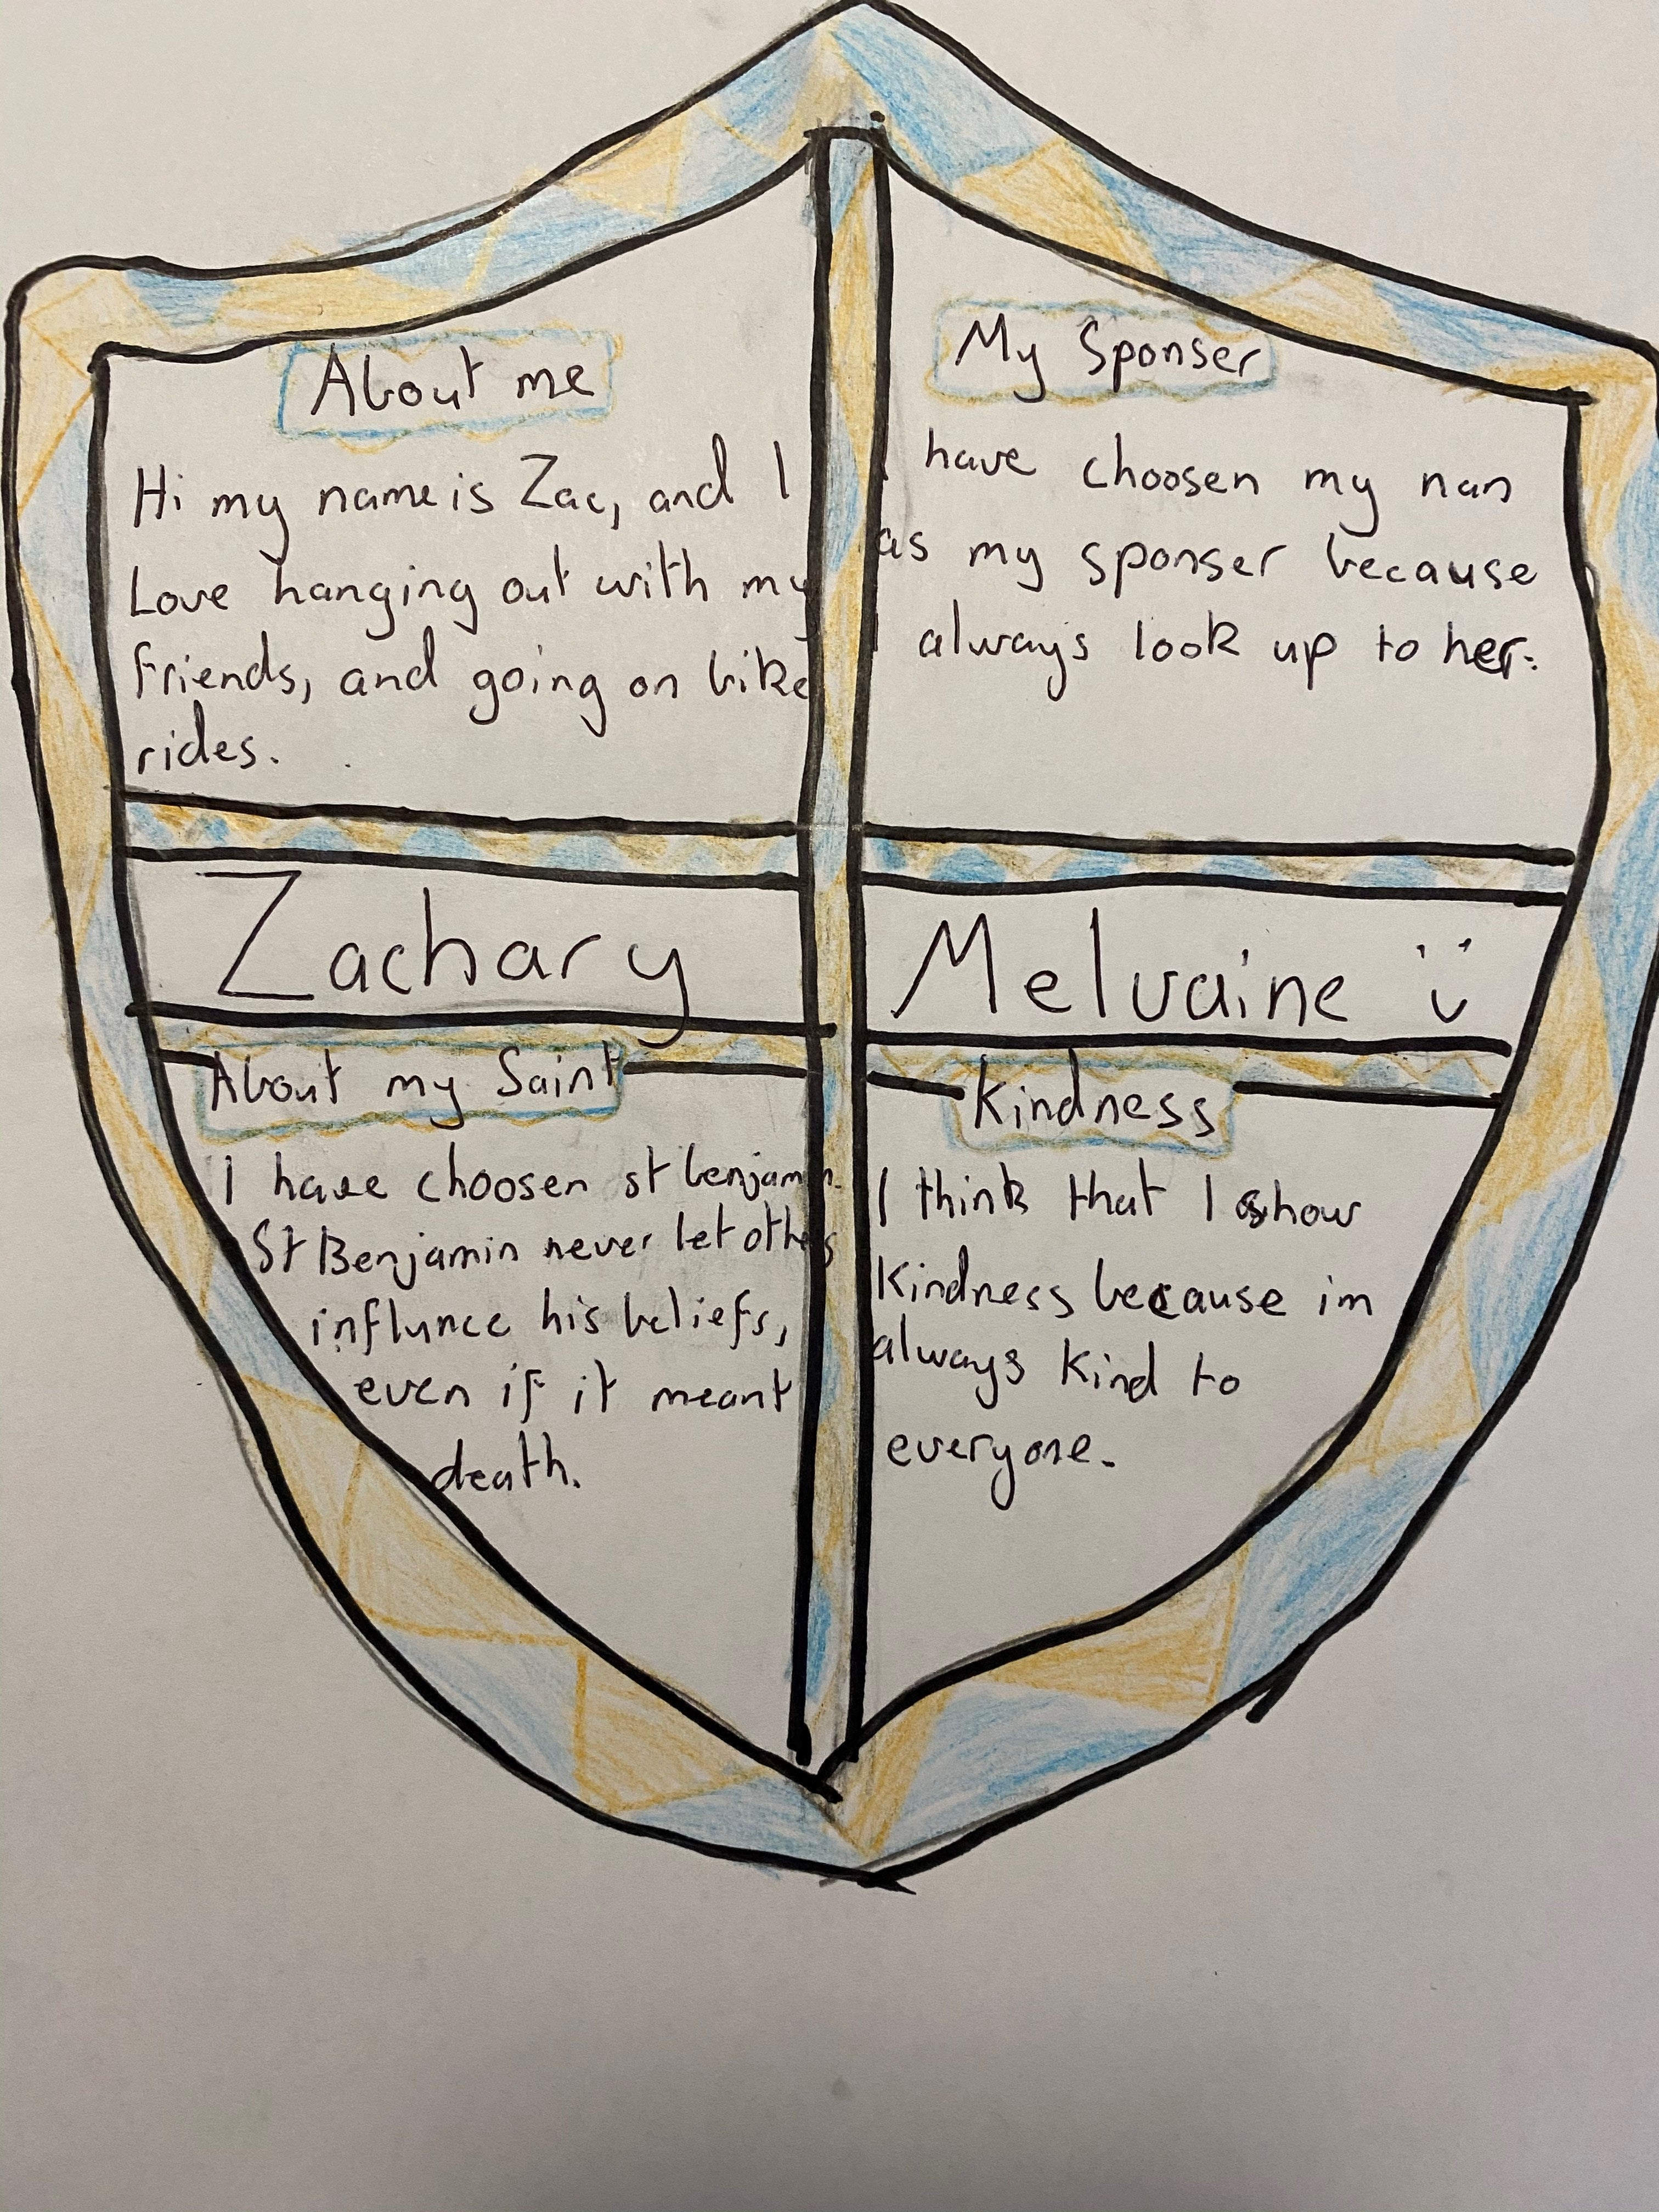 About me
Hi my name is Zac, and I
Love hanging out with my
friends, and going on bike
rides.
My Sponser
I have choosen my nan
as my sponser because
I always look up to her.
Zachary
Melvaine
About my Saint
I have choosen st benjamin.
St Benjamin never let others
influnce his beliefs,
even if it meant
death.
Kindness
I think that I show
Kindness because im
always kind to
everyone.